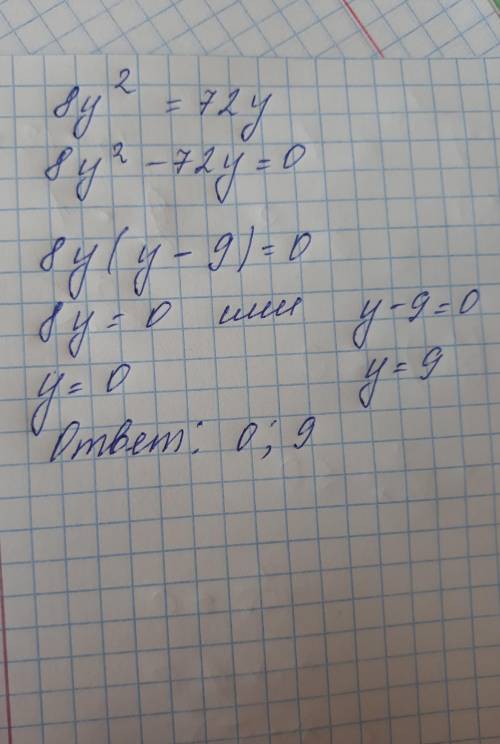 8y² = 72y
8y² - 72y = 0
8y(y - 9) = 0
8y = 0 или y - 9 = 0
y = 0 y = 9
Ответ: 0; 9